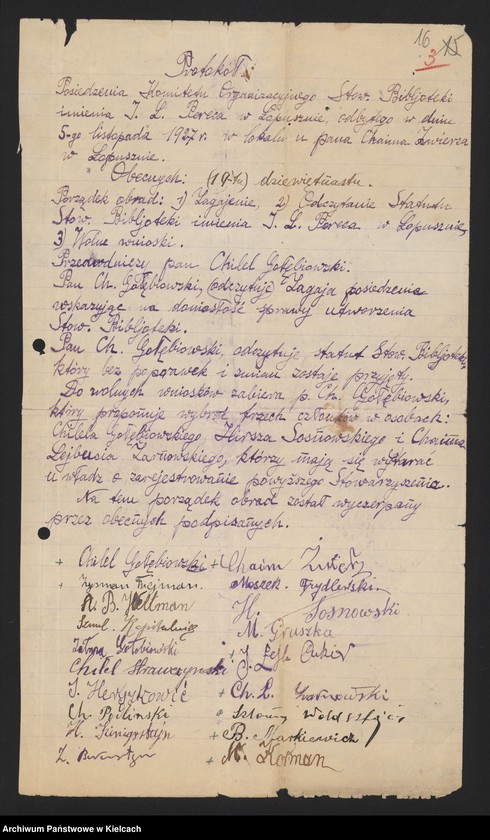 16 15
3
Protokół:
Posiedzenia Komitetu Organizacyjnego Stow. Bibljoteki
imienia I. L. Pereca w Łopusznie, odbytego w dniu
5-go listopada 1927 r. w lokalu u pana Chaima Zmierza
w Łopusznie.
Obecnych: (19-tu) dziewiętnastu.
Porządek obrad: 1) Zagajenie, 2) Odczytanie Statutu
Stow. Bibljoteki imienia I. L. Pereca w Łopusznie,
3) Wolne wnioski.
Przewodniczy pan Chilel Gołębiowski.
Pan Ch. Gołębiowski, (odczytuje) Zagaja posiedzenie
wskazując na doniosłość sprawy utworzenia
Stow. Bibljoteki.
Pan Ch. Gołębiowski, odczytuje statut Stow. Bibljoteki,
który bez poprawek i zmian zostaje przyjęty.
Do wolnych wniosków zabiera p. Ch. Gołębiowski,
który proponuje wybrać trzech członków w osobach:
Chilela Gołębiowskiego, Hersza Sosnowskiego i Chaima
Lejbusia Żarnowskiego, którzy mają się wystarać
u władz o zarejestrowanie powyższego Stowarzyszenia.
Na tem porządek obrad został wyczerpany
przez obecnych podpisanych.
+ Chilel Gołębiowski + Chaim
+ Zyman Frejman. Moszek Frydlewski
B. Weltman H. Sosnowski
Szml. M. Gruszka
Gołębiowski + J. Lejb Cukier
Chilel Krawczynski
J. Herszkowić + Ch. L. Żarnowski
Ch. Szlama
H. + B. Markiewicz
Z. + M. Kofman
Archiwum Państwowe w Kielcach